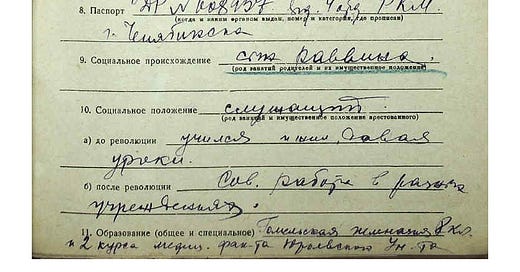 8. Паспорт № 008137 выд. Чорд РКМ.
(когда и каким органом выдан, номер и категория, где прописан)
г. Челябинска
9. Социальное происхождение сын раввина.
(род занятий родителей и их имущественное положение)
10. Социальное положение служащий.
(род занятий и имущественное положение арестованного)
а) до революции учился и жил, давая
уроки.
б) после революции Сов. работа в разных
учреждениях.
11. Образование (общее и специальное) Гомельская гимназия 8 кл.
и 2 курса медиц. фак-та Юрьевского Ун-та